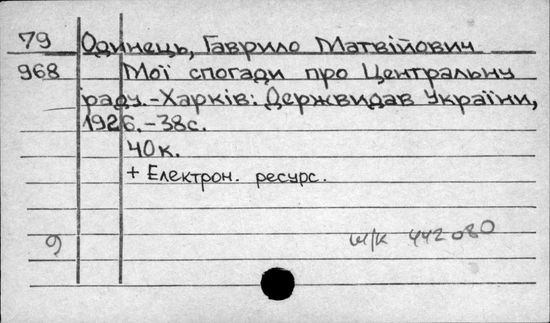 79 Одинець, Гаврило Матвійович
968 Мої спогади про Центральну
раду.-Харків: Держвидав України,
1926.-38с.
40к.
+ Електрон. ресурс.
9 ш/к 442080